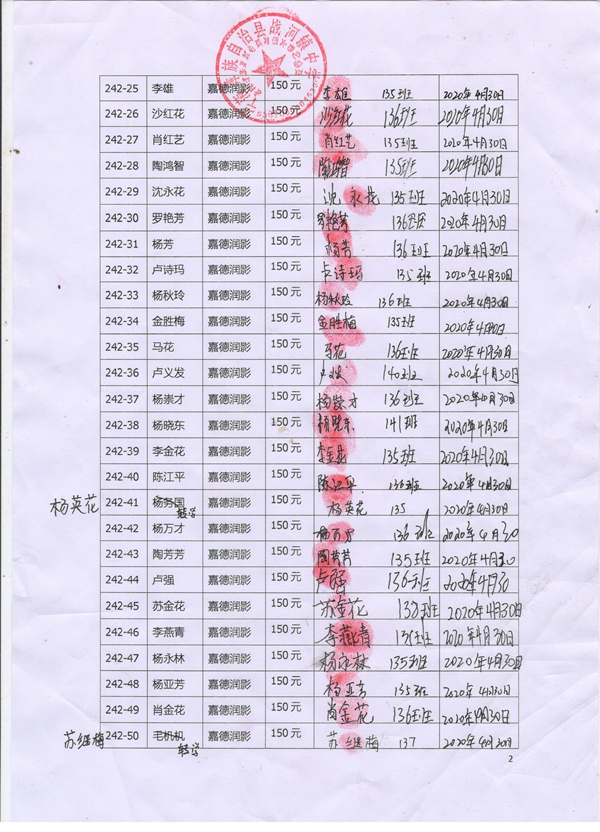 族自治县战河镇中学
242-25 李雄 嘉德润影 150元 李雄 135班 2020年4月30日
242-26 沙红花 嘉德润影 150元 沙红花 136班 2020年4月30日
242-27 肖红艺 嘉德润影 150元 肖红艺 135班 2020年4月30日
242-28 陶鸿智 嘉德润影 150元 陶鸿智 135班 2020年4月30日
242-29 沈永花 嘉德润影 150元 沈永花 135班 2020年4月30日
242-30 罗艳芳 嘉德润影 150元 罗艳芳 136班 2020年4月30日
242-31 杨芳 嘉德润影 150元 杨芳 136班 2020年4月30日
242-32 卢诗玛 嘉德润影 150元 卢诗玛 135班 2020年4月30日
242-33 杨秋玲 嘉德润影 150元 杨秋玲 136班 2020年4月30日
242-34 金胜梅 嘉德润影 150元 金胜梅 135班 2020年4月30日
242-35 马花 嘉德润影 150元 马花 136班 2020年4月30日
242-36 卢义发 嘉德润影 150元 140班 2020年4月30日
242-37 杨崇才 嘉德润影 150元 杨崇才 136班 2020年4月30日
242-38 杨晓东 嘉德润影 150元 杨晓东 141班 2020年4月30日
242-39 李金花 嘉德润影 150元 李金花 135班 2020年4月30日
242-40 陈江平 嘉德润影 150元 陈江平 136班 2020年4月30日
杨英花 242-41 杨务国 转学 嘉德润影 150元 杨英花 135 2020年4月30日
242-42 杨万才 嘉德润影 150元 杨万才 136班 2020年4月30
242-43 陶芳芳 嘉德润影 150元 陶芳芳 135班 2020年4月30
242-44 卢强 嘉德润影 150元 卢强 136班 2020年4月30
242-45 苏金花 嘉德润影 150元 苏金花 138班 2020年4月30日
242-46 李燕青 嘉德润影 150元 李燕青 2020年4月30日
242-47 杨永林 嘉德润影 150元 杨永林 135班 2020年4月30日
242-48 杨亚芳 嘉德润影 150元 杨亚芳 135班 2020年4月30日
242-49 肖金花 嘉德润影 150元 肖金花 136班 2020年4月30日
苏继梅 242-50 毛机机 转学 嘉德润影 150元 苏继梅 137 2020年4月30日
2